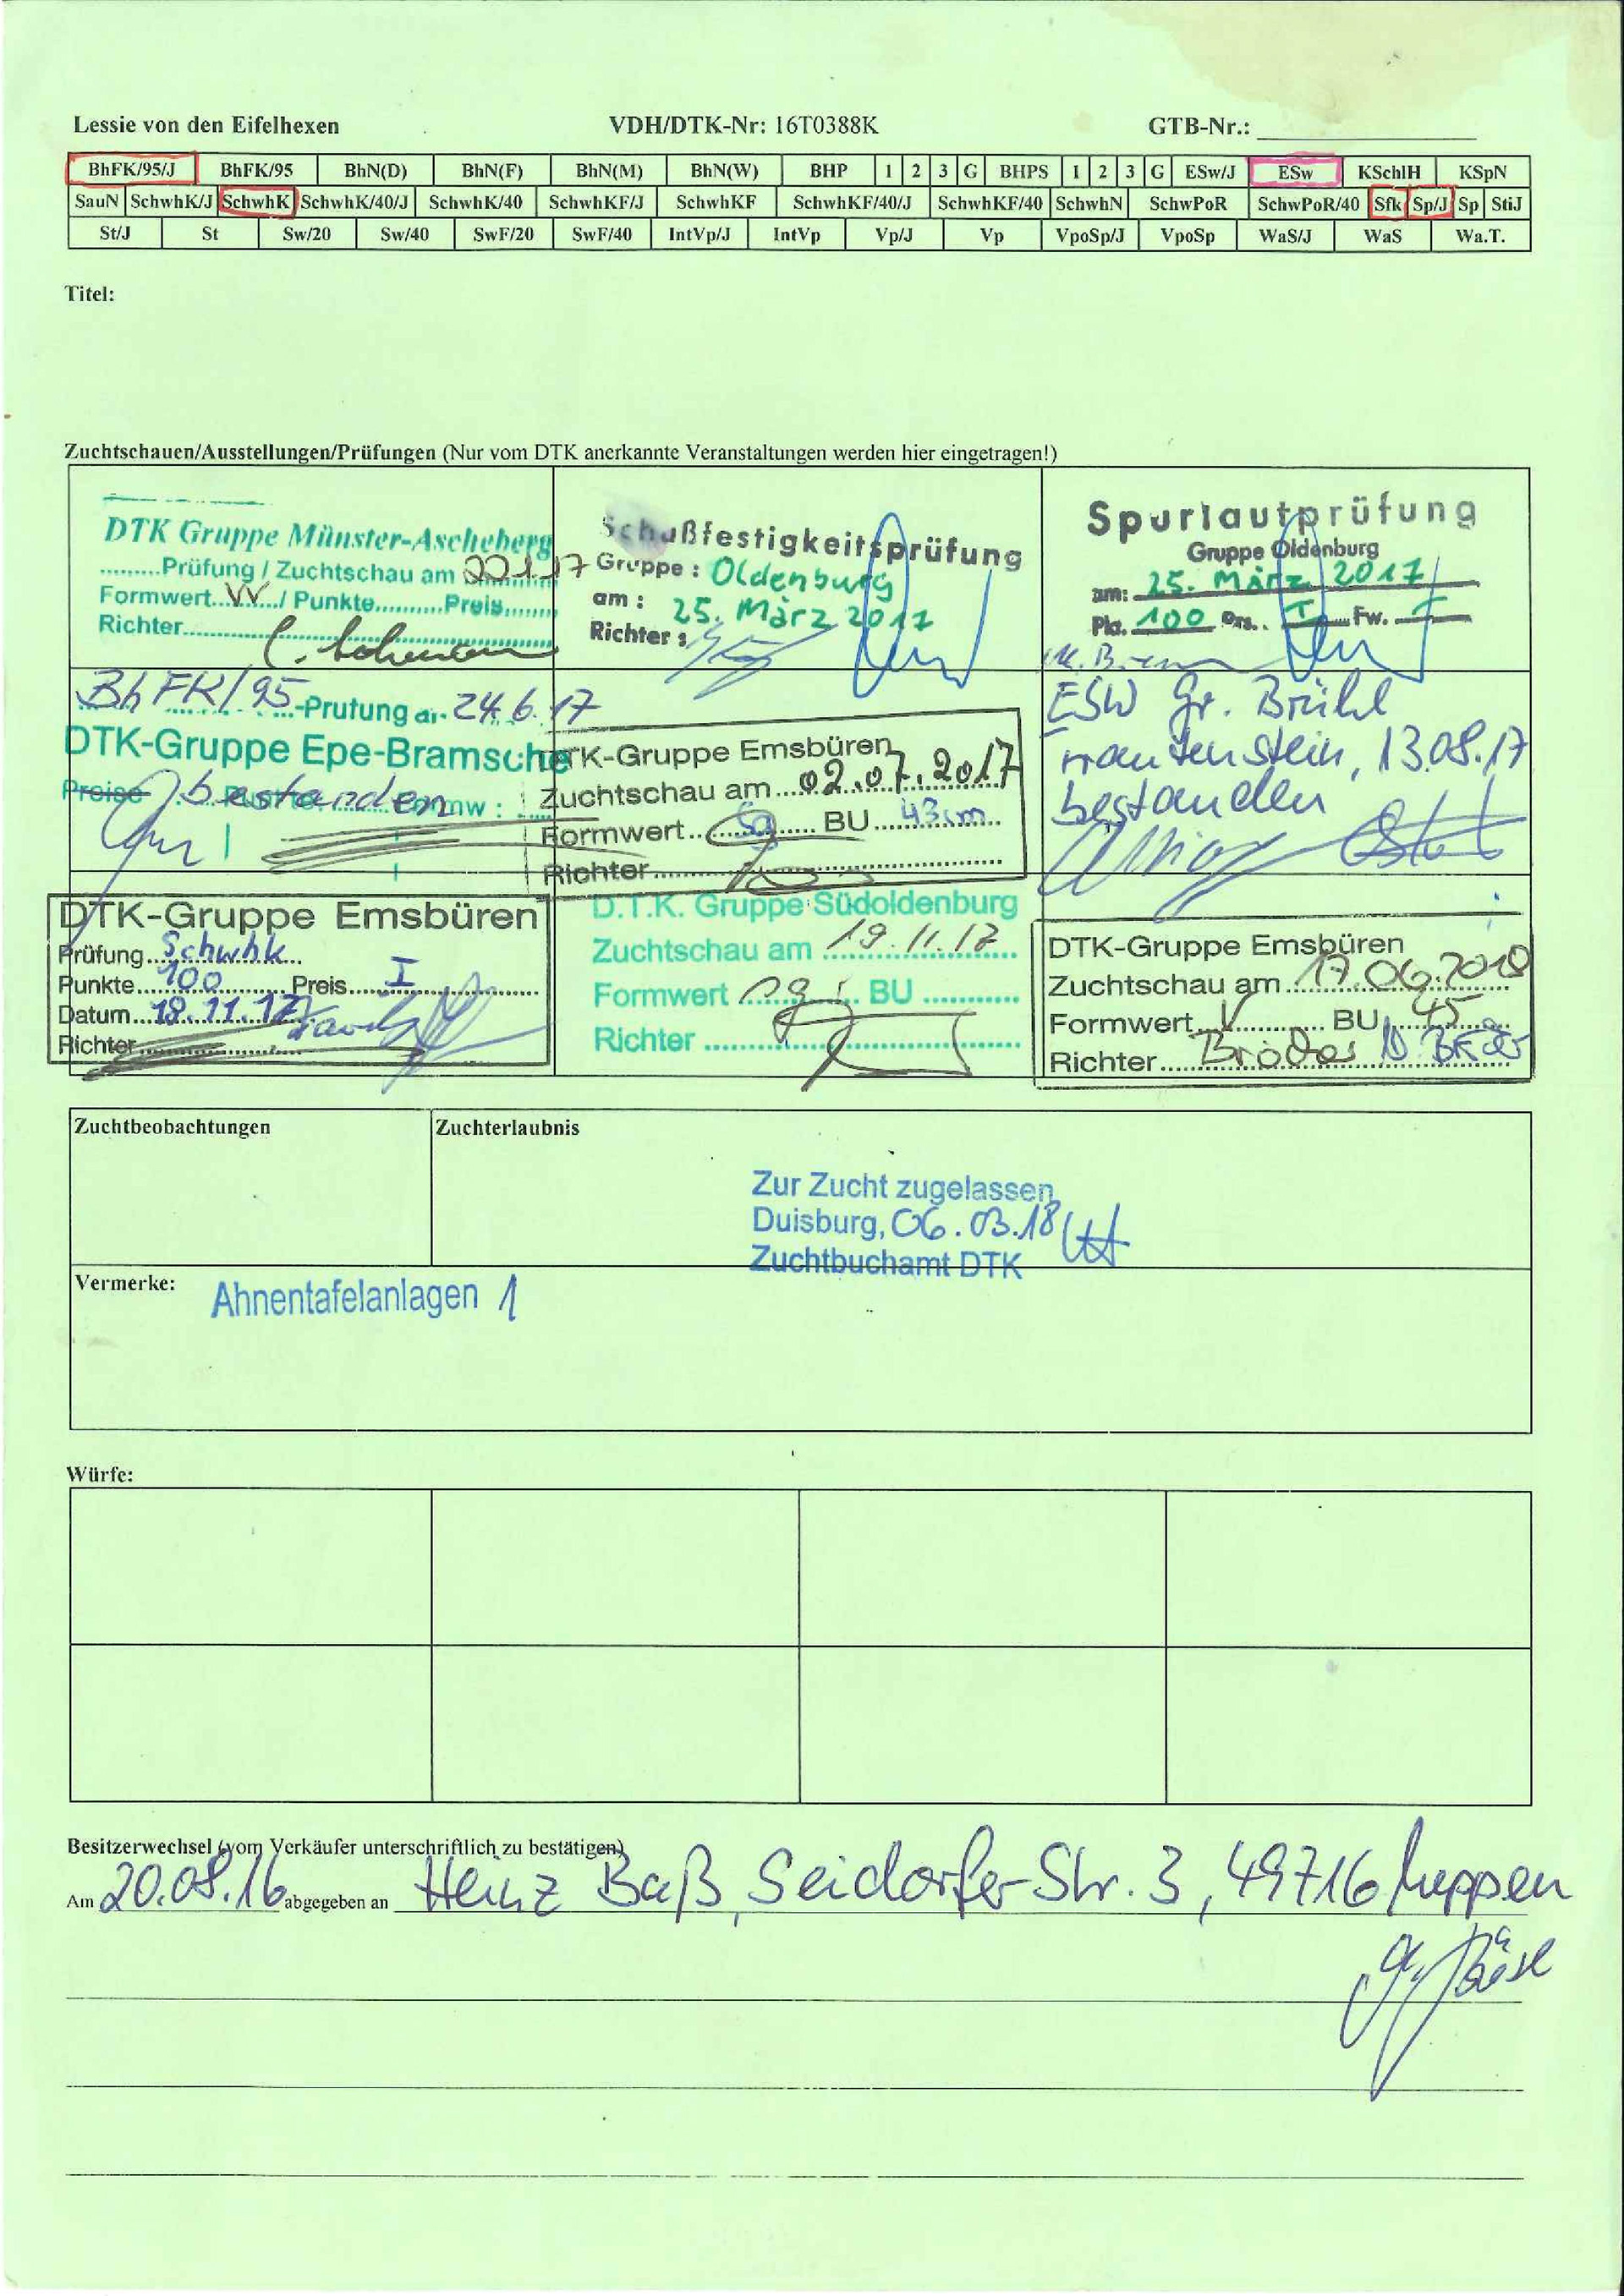 Lessie von den Eifelhexen VDH/DTK-Nr: 16T0388K GTB-Nr.:
BhFK/95/J BhFK/95 BhN(D) BhN(F) BhN(M) BhN(W) BHP 1 2 3 G BHPS 1 2 3 G ESw/J ESw KSchlH KSpN
SauN SchwhK/J SchwhK SchwhK/40/J SchwhK/40 SchwhKF/J SchwhKF SchwhKF/40/J SchwhKF/40 SchwhN SchwPoR SchwPoR/40 Sfk Sp/J Sp StiJ
St/J St Sw/20 Sw/40 SwF/20 SwF/40 IntVp/J IntVp Vp/J Vp VpoSp/J VpoSp WaS/J WaS Wa.T.
Titel:
Zuchtschauen/Ausstellungen/Prüfungen (Nur vom DTK anerkannte Veranstaltungen werden hier eingetragen!)
DTK Gruppe Münster-Ascheberg
Prüfung / Zuchtschau am
Formwert VV / Punkte Preis
Richter
Schußfestigkeitsprüfung
Gruppe: Oldenburg
am: 25. März 2017
Richter:
Spurlautprüfung
Gruppe Oldenburg
am: 25. März 2017
Pkt. 100 Prs. I Fw.
BhFK/95 -Prüfung am 24.6.17
DTK-Gruppe Epe-Bramsche
Preise bestanden
DTK-Gruppe Emsbüren
Zuchtschau am 02.07.2017
Formwert sg BU 43cm
Richter
ESW Gr. Brühl
13.08.17
bestanden
DTK-Gruppe Emsbüren
Prüfung Schwhk
Punkte 100 Preis I
Datum 18.11.17
Richter
D.T.K. Gruppe Südoldenburg
Zuchtschau am 19.11.17
Formwert BU
Richter
DTK-Gruppe Emsbüren
Zuchtschau am 17.06.2018
Formwert V BU 45
Richter
Zuchtbeobachtungen Zuchterlaubnis
Zur Zucht zugelassen
Duisburg, 06.03.18
Zuchtbuchamt DTK
Vermerke: Ahnentafelanlagen 1
Würfe:
Besitzerwechsel (vom Verkäufer unterschriftlich zu bestätigen)
Am 20.08.16 abgegeben an Heinz Baß, Seidorfer-Str. 3, 49716 Meppen